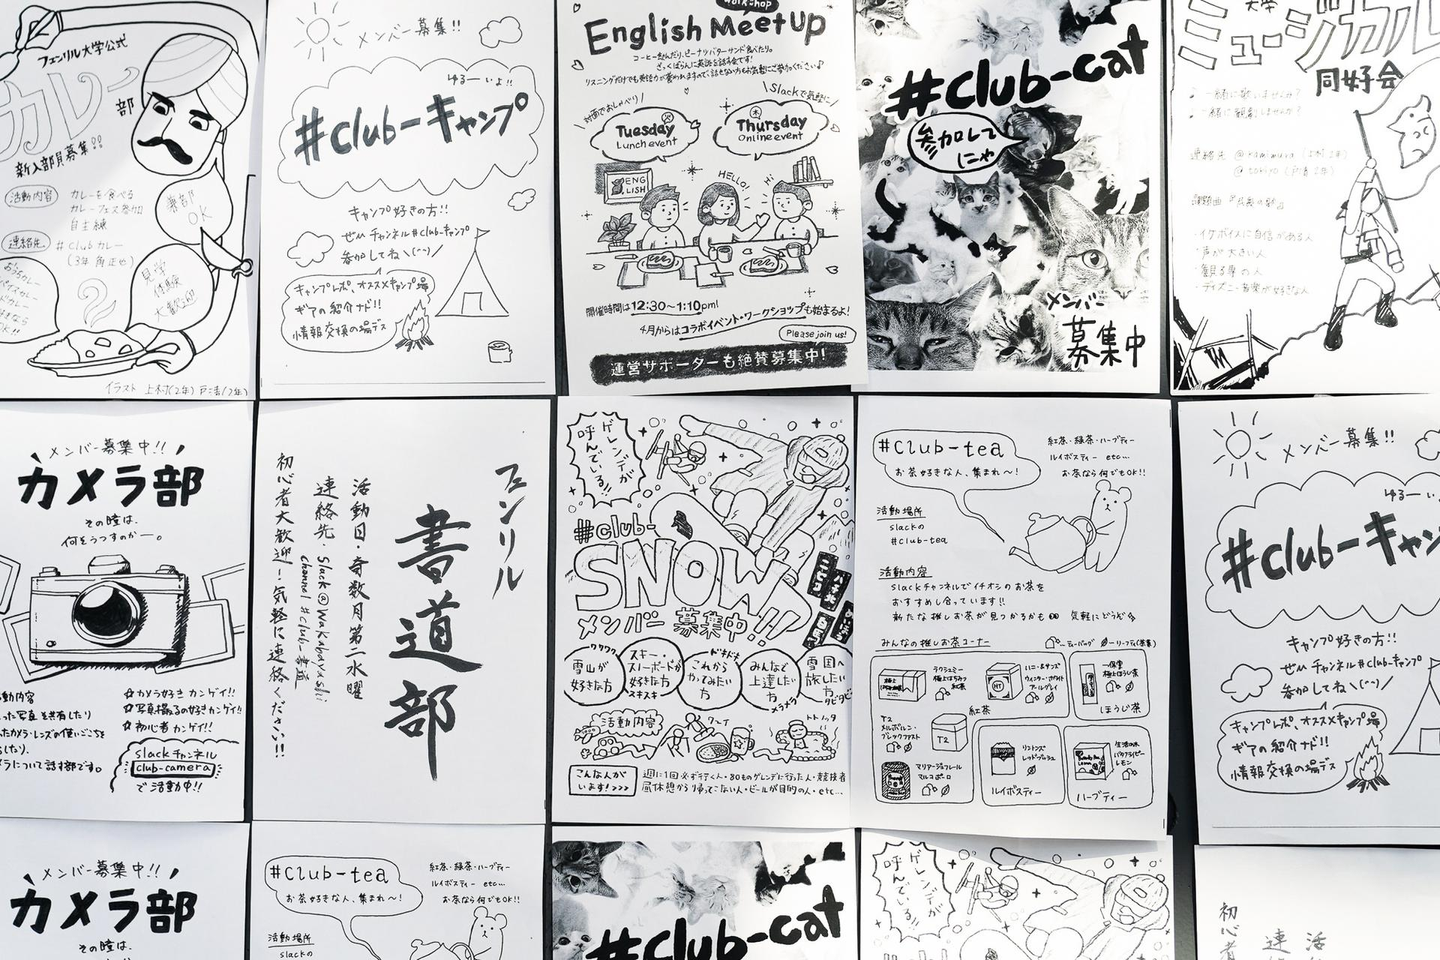 フェンリル大学公式
カレー
部
新入部員募集!!
活動内容
カレーを食べる
カレーフェス参加
自主練
連絡先
#clubカレー
兼部
OK
見学
体験
大歓迎
メンバー募集!!
ゆるーいよ!!
#club-キャンプ
キャンプ好きの方!!
ぜひチャンネル#club-キャンプ
参加してね\(^-^)/
キャンプレポ、オススメキャンプ場
ギアの紹介ナド!!
情報交換の場デス
workshop
English MeetUp
コーヒー飲んだり、ピーナツバターサンド食べたり。
ざっくばらんに英語を話す会です!
対面でおしゃべり!
Slackで気軽に!
Tuesday
火
Lunch event
Thursday
木
Online event
ENG
LISH
HELLO!
Hi
開催時間は12:30~1:10pm!
4月からはコラボイベント・ワークショップも始まるよ!
Please join us!
運営サポーターも絶賛募集中!
#club-cat
参加して
にゃ
メンバー
募集中
大学
ミュージカル
同好会
一緒に歌いませんか?
一緒に観劇しませんか?
連絡先
・イケボイスに自信がある人
・声が大きい人
・観る専の人
・ディズニー音楽が好きな人
メンバー募集中!!
カメラ部
その瞳は、
何をうつすのか―。
カメラ好き カンゲイ!!
写真撮るの好きカンゲイ!!
初心者 カンゲイ!!
slackチャンネル
club-camera
で活動中!!
フェンリル
書道部
活動日・奇数月第二水曜
連絡先 Slack@Wakabayashi
channel #club-書道
初心者大歓迎!気軽に連絡ください!!
ゲレンデが
呼んでいる!!
#club-
SNOW
メンバー募集中!!
雪山が
好きな方
スキー・
スノーボードが
好きな方
これから
やってみたい
方
みんなで
上達したい
方
雪国へ
旅したい
方
活動内容
こんな人が
います!>>>
週に1回必ず行く人・80ものゲレンデに行った人・競技者
昼休憩から帰ってこない人・ビールが目的の人・etc...
#club-tea
お茶好きな人、集まれ~!
紅茶・緑茶・ハーブティー
ルイボスティー etc...
お茶なら何でもOK!!
活動場所
slackの
#club-tea
活動内容
slackチャンネルでイチオシのお茶を
おすすめし合っています!!
新たな推しお茶が見つかるかも 気軽にどうぞ
みんなの推しお茶コーナー
紅茶
T2
ほうじ茶
ルイボスティー
ハーブティー
メンバー募集!!
ゆるーい
#club-キャン
キャンプ好きの方!!
ぜひチャンネル#club-キャンプ
参加してね\(^-^)/
キャンプレポ、オススメキャンプ場
ギアの紹介ナド!!
情報交換の場デス
メンバー募集中!!
カメラ部
その瞳は、
#club-tea
お茶好きな人、集まれ~!
紅茶・緑茶・ハーブティー
ルイボスティー etc...
お茶なら何でもOK!!
活動場所
slackの
#club-cat
ゲレンデが
呼んでいる!!
活
連
初心者